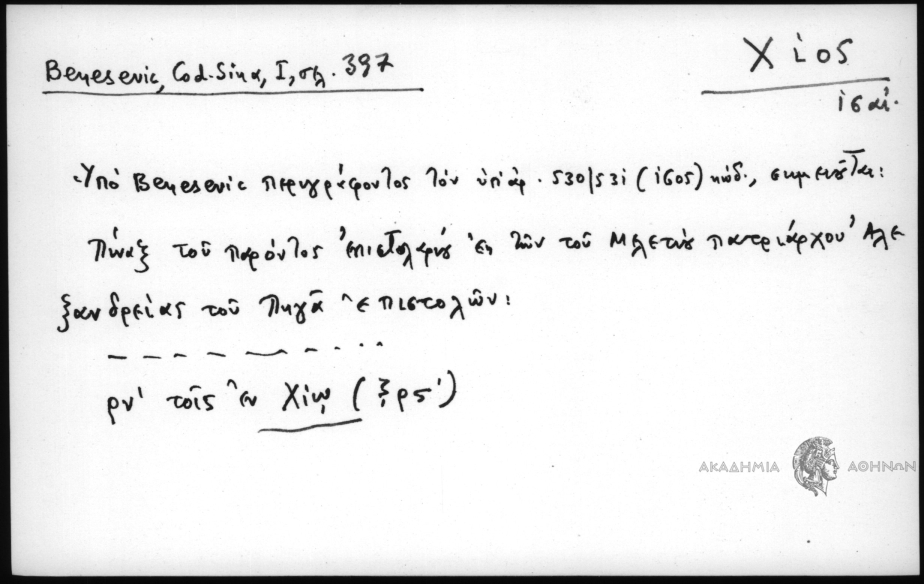 Benesevic, Cod. Sina, I, σελ. 397
Χίος
ἱσαί.
Ὑπό Benesevic περιγράφοντος τόν ὑπ' ἀρ. 530/531 (1605) κώδ., σημειοῦται:
Πίναξ τοῦ παρόντος ἐπιστολαρίου ἐκ τῶν τοῦ Μελετίου πατριάρχου Ἀλε
ξανδρείας τοῦ Πηγᾶ ἐπιστολῶν:
ρν' τοῖς ἐν Χίῳ (ξρς')
ΑΚΑΔΗΜΙΑ ΑΘΗΝΩΝ